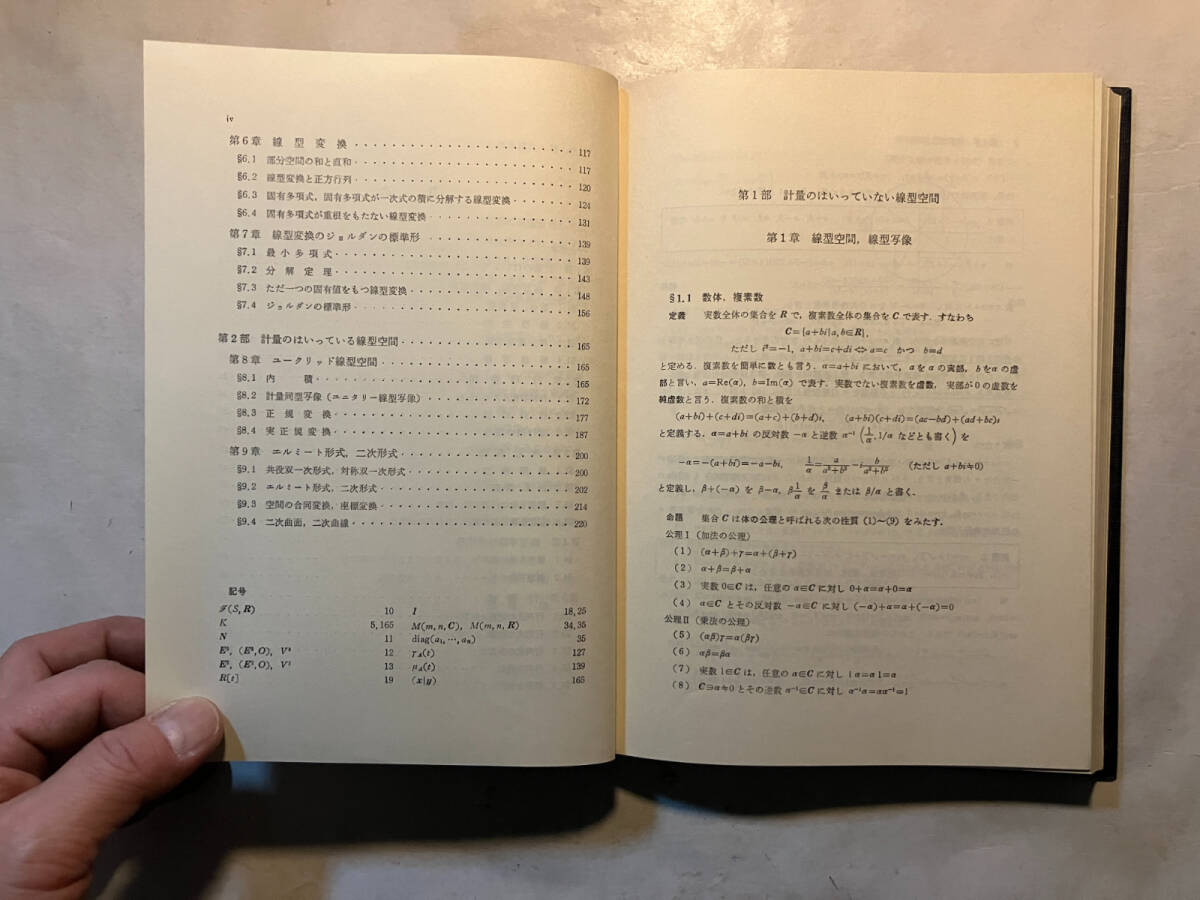 iv
第6章 線型変換 117
§6.1 部分空間の和と直和 117
§6.2 線型変換と正方行列 120
§6.3 固有多項式,固有多項式が一次式の積に分解する線型変換 124
§6.4 固有多項式が重根をもたない線型変換 131
第7章 線型変換のジョルダンの標準形 139
§7.1 最小多項式 139
§7.2 分解定理 143
§7.3 ただ一つの固有値をもつ線型変換 148
§7.4 ジョルダンの標準形 156
第2部 計量のはいっている線型空間 165
第8章 ユークリッド線型空間 165
§8.1 内積 165
§8.2 計量同型写像(ユニタリー線型写像) 172
§8.3 正規変換 177
§8.4 実正規変換 187
第9章 エルミート形式,二次形式 200
§9.1 共役双一次形式,対称双一次形式 200
§9.2 エルミート形式,二次形式 202
§9.3 空間の合同変換,座標変換 214
§9.4 二次曲面,二次曲線 220
記号
ℱ(S, R) 10 I 18,25
K 5,165 M(m, n, C), M(m, n, R) 34,35
N 11 diag(a₁, …, aₙ) 35
12 γ_A(t) 127
13 μ_A(t) 139
R[t] 19 (x|y) 165
第1部 計量のはいっていない線型空間
第1章 線型空間,線型写像
§1.1 数体,複素数
定義 実数全体の集合を R で,複素数全体の集合を C で表す.すなわち
C={a+bi|a, b∈R},
ただし i²=−1, a+bi=c+di⇔a=c かつ b=d
と定める.複素数を簡単に数とも言う.α=a+bi において,a を α の実部,b を α の虚
部と言い,a=Re(α), b=Im(α) で表す.実数でない複素数を虚数,実部が 0 の虚数を
純虚数と言う.複素数の和と積を
(a+bi)+(c+di)=(a+c)+(b+d)i, (a+bi)(c+di)=(ac−bd)+(ad+bc)i
と定義する.α=a+bi の反対数 −α と逆数 α⁻¹ (1/α, 1/α などとも書く) を
−α=−(a+bi)=−a−bi, 1/α=a/(a²+b²)−i b/(a²+b²) (ただし a+bi≠0)
と定義し,β+(−α) を β−α, β1/α を β/α または β/α と書く.
命題 集合 C は体の公理と呼ばれる次の性質 (1)〜(9) をみたす.
公理 I (加法の公理)
(1) (α+β)+γ=α+(β+γ)
(2) α+β=β+α
(3) 実数 0∈C は,任意の α∈C に対し 0+α=α+0=α
(4) α∈C とその反対数 −α∈C に対し (−α)+α=α+(−α)=0
公理 II (乗法の公理)
(5) (αβ)γ=α(βγ)
(6) αβ=βα
(7) 実数 1∈C は,任意の α∈C に対し 1α=α1=α
(8) C∋α≠0 とその逆数 α⁻¹∈C に対し α⁻¹α=αα⁻¹=1